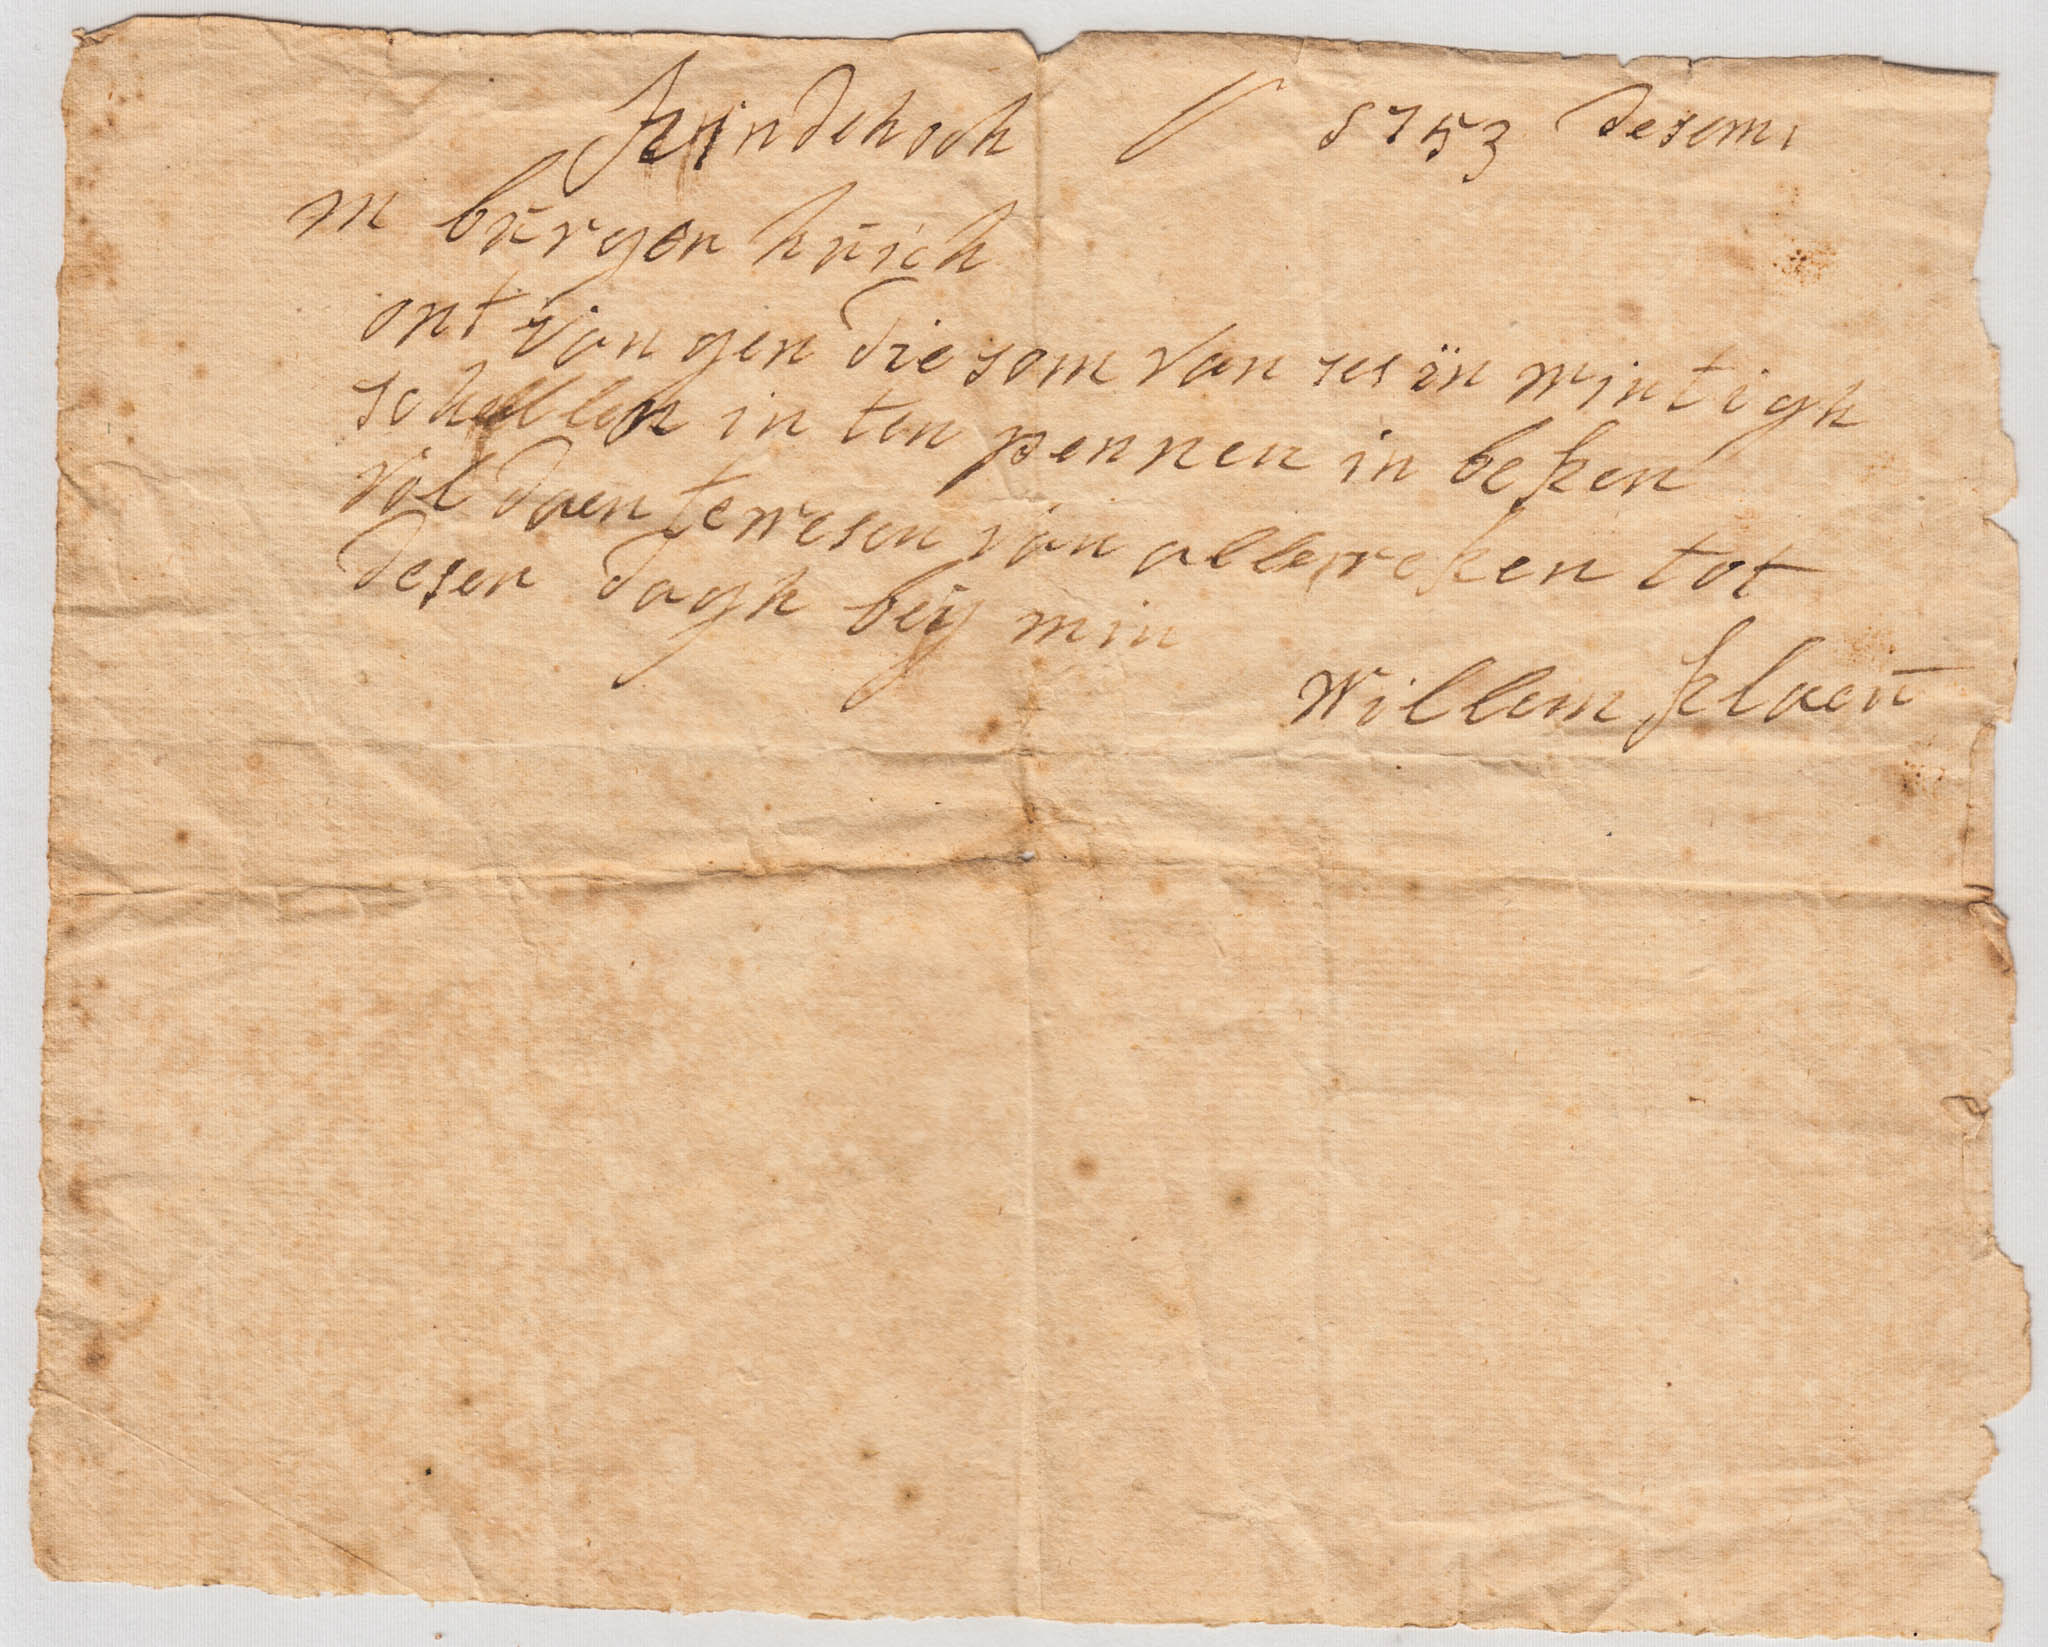 kindehoch 1753 desem
m bürgen hüich
ontvangen die som van ses ün wintigh
schellen in ten pennen in beken
vol daen te wesen van alle reken tot
desen dagh beÿ min
Willem klaeü